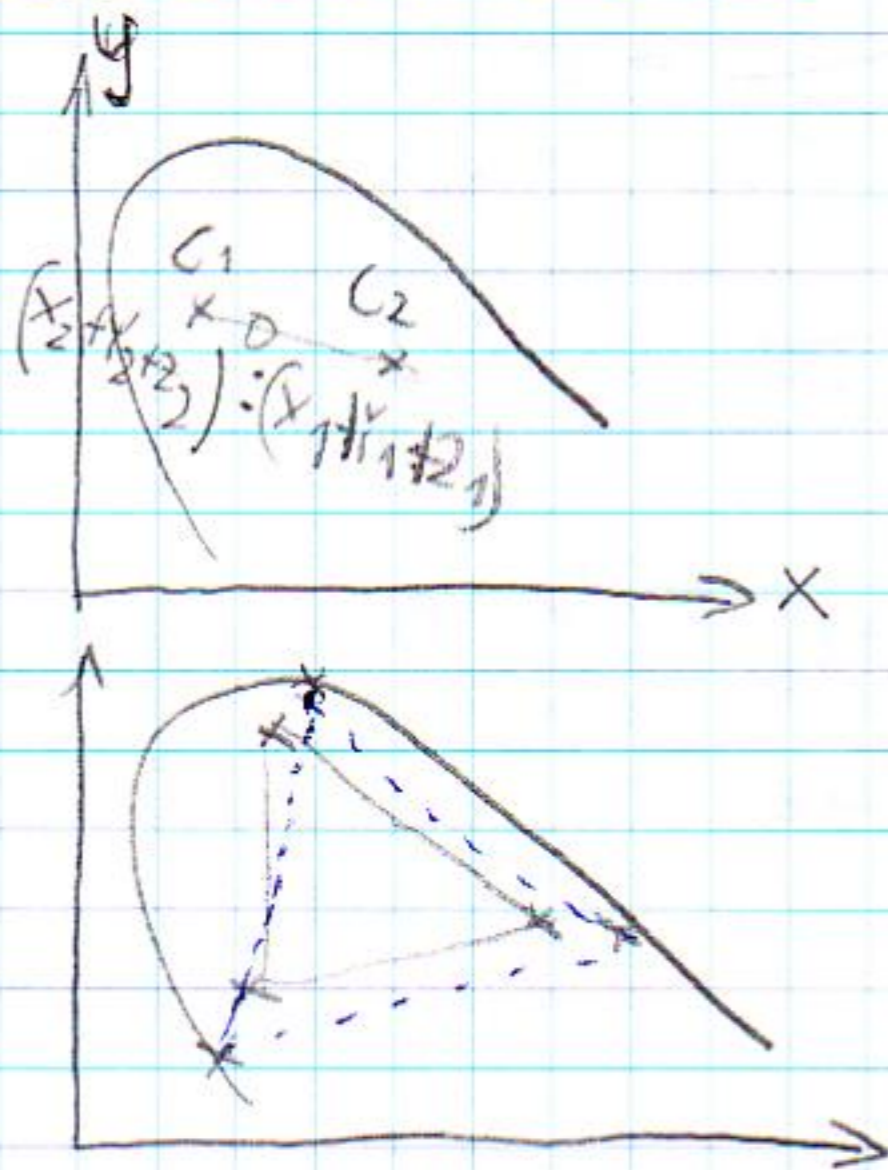 y
C1
C2
(X2+Y2+Z2) : (X1+Y1+Z1)
X